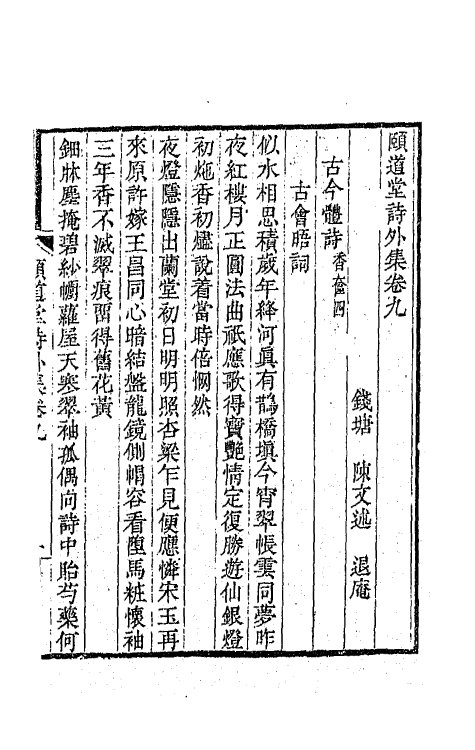 頤道堂詩外集卷九
錢塘 陳文述 退庵
古今體詩香奩四
古會晤詞
似水相思積歲年絳河真有鵲橋填今宵翠帳雲同夢昨
夜紅樓月正圓法曲祇應歌得寶艷情定復勝遊仙銀燈
初灺香初燼說着當時倍惘然
夜燈隱隱出蘭堂初日明明照杏梁乍見便應憐宋玉再
來原許嫁王昌同心暗結盤龍鏡側帽容看墮馬粧懷袖
三年香不滅翠痕畱得舊花黃
鈿牀塵掩碧紗幮蘿屋天寒翠袖孤偶向詩中貽芍藥何
頤道堂詩外集卷九 一